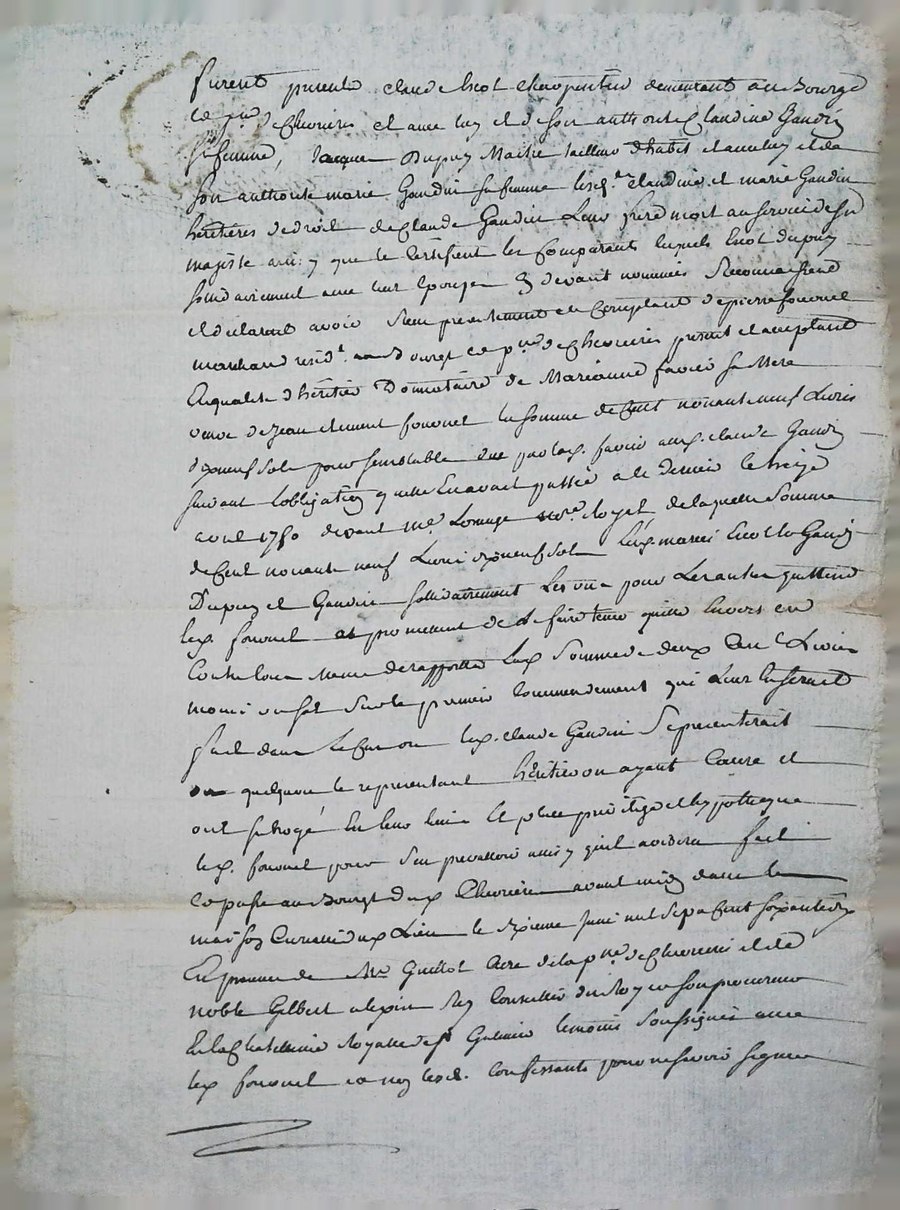 furent presents claude Chol Charpentier demeurant au Bourg
et pse de Chevrieres et avec luy et de son authorité Claudine Gaudin
sa femme, Jacques Dupuy Maitre tailleur d'habit et avec luy et de
son authorité marie Gaudin sa femme lesd. claudine et marie Gaudin
heritieres de droit de Claude Gaudin Leur frere mort au service de sa
majesté ainsy que le Certifient les Comparants lesquels Dupuy
solidairement avec leur Epouses Cy devant nommées Reconnaissent
et declarent avoir Reçu presentement et Comptant de pierre fournel
marchand resid. Bourg et pse de Chevrieres present et acceptant
En qualité d'heritier Donnataire de Marianne favier sa Mere
veuve de Jean clement fournel la somme de Cent nonante neuf Livres
dixneuf sols pour semblable due par lad. favier aud. claude Gaudin
suivant l'obligation qu'elle En avait passée a ce dernier le treize
aout 1750 devant Me not. royal de laquelle somme
de Cent nonante neuf Livres dixneuf sols les mariés et Gaudin
Dupuy et Gaudin solidairement Les uns pour Les autres quittent
led. fournel et promettent de le faire tenir quitte Envers et
Contre tous meme de rapporter lad. Somme de deux Cent Livres
moins un sol sur le premier Commendement qui Leur En serait
fait dans le Cas ou led. claude Gaudin Representerait
ou quelqu'un le representant heritier ou ayant Cause et
ont subrogé En leur lieu et place privilege et hypotheque
led. fournel pour s'en prevalloir ainsy qu'il avisera fait
et passé au Bourg dud. Chevrieres avant midy dans la
maison Curialle dud. Lieu le sixieme juin mil sept Cent soixante dix
En presence de Mre Guillot Curé de la pse de Chevrieres et de
noble Gilbert alexis Rey Conseiller du Roy et son procureur
En la Chatellenie royalle de st Galmier temoins soussignés avec
led. fournel et non lesd. Confessants pour ne savoir signer